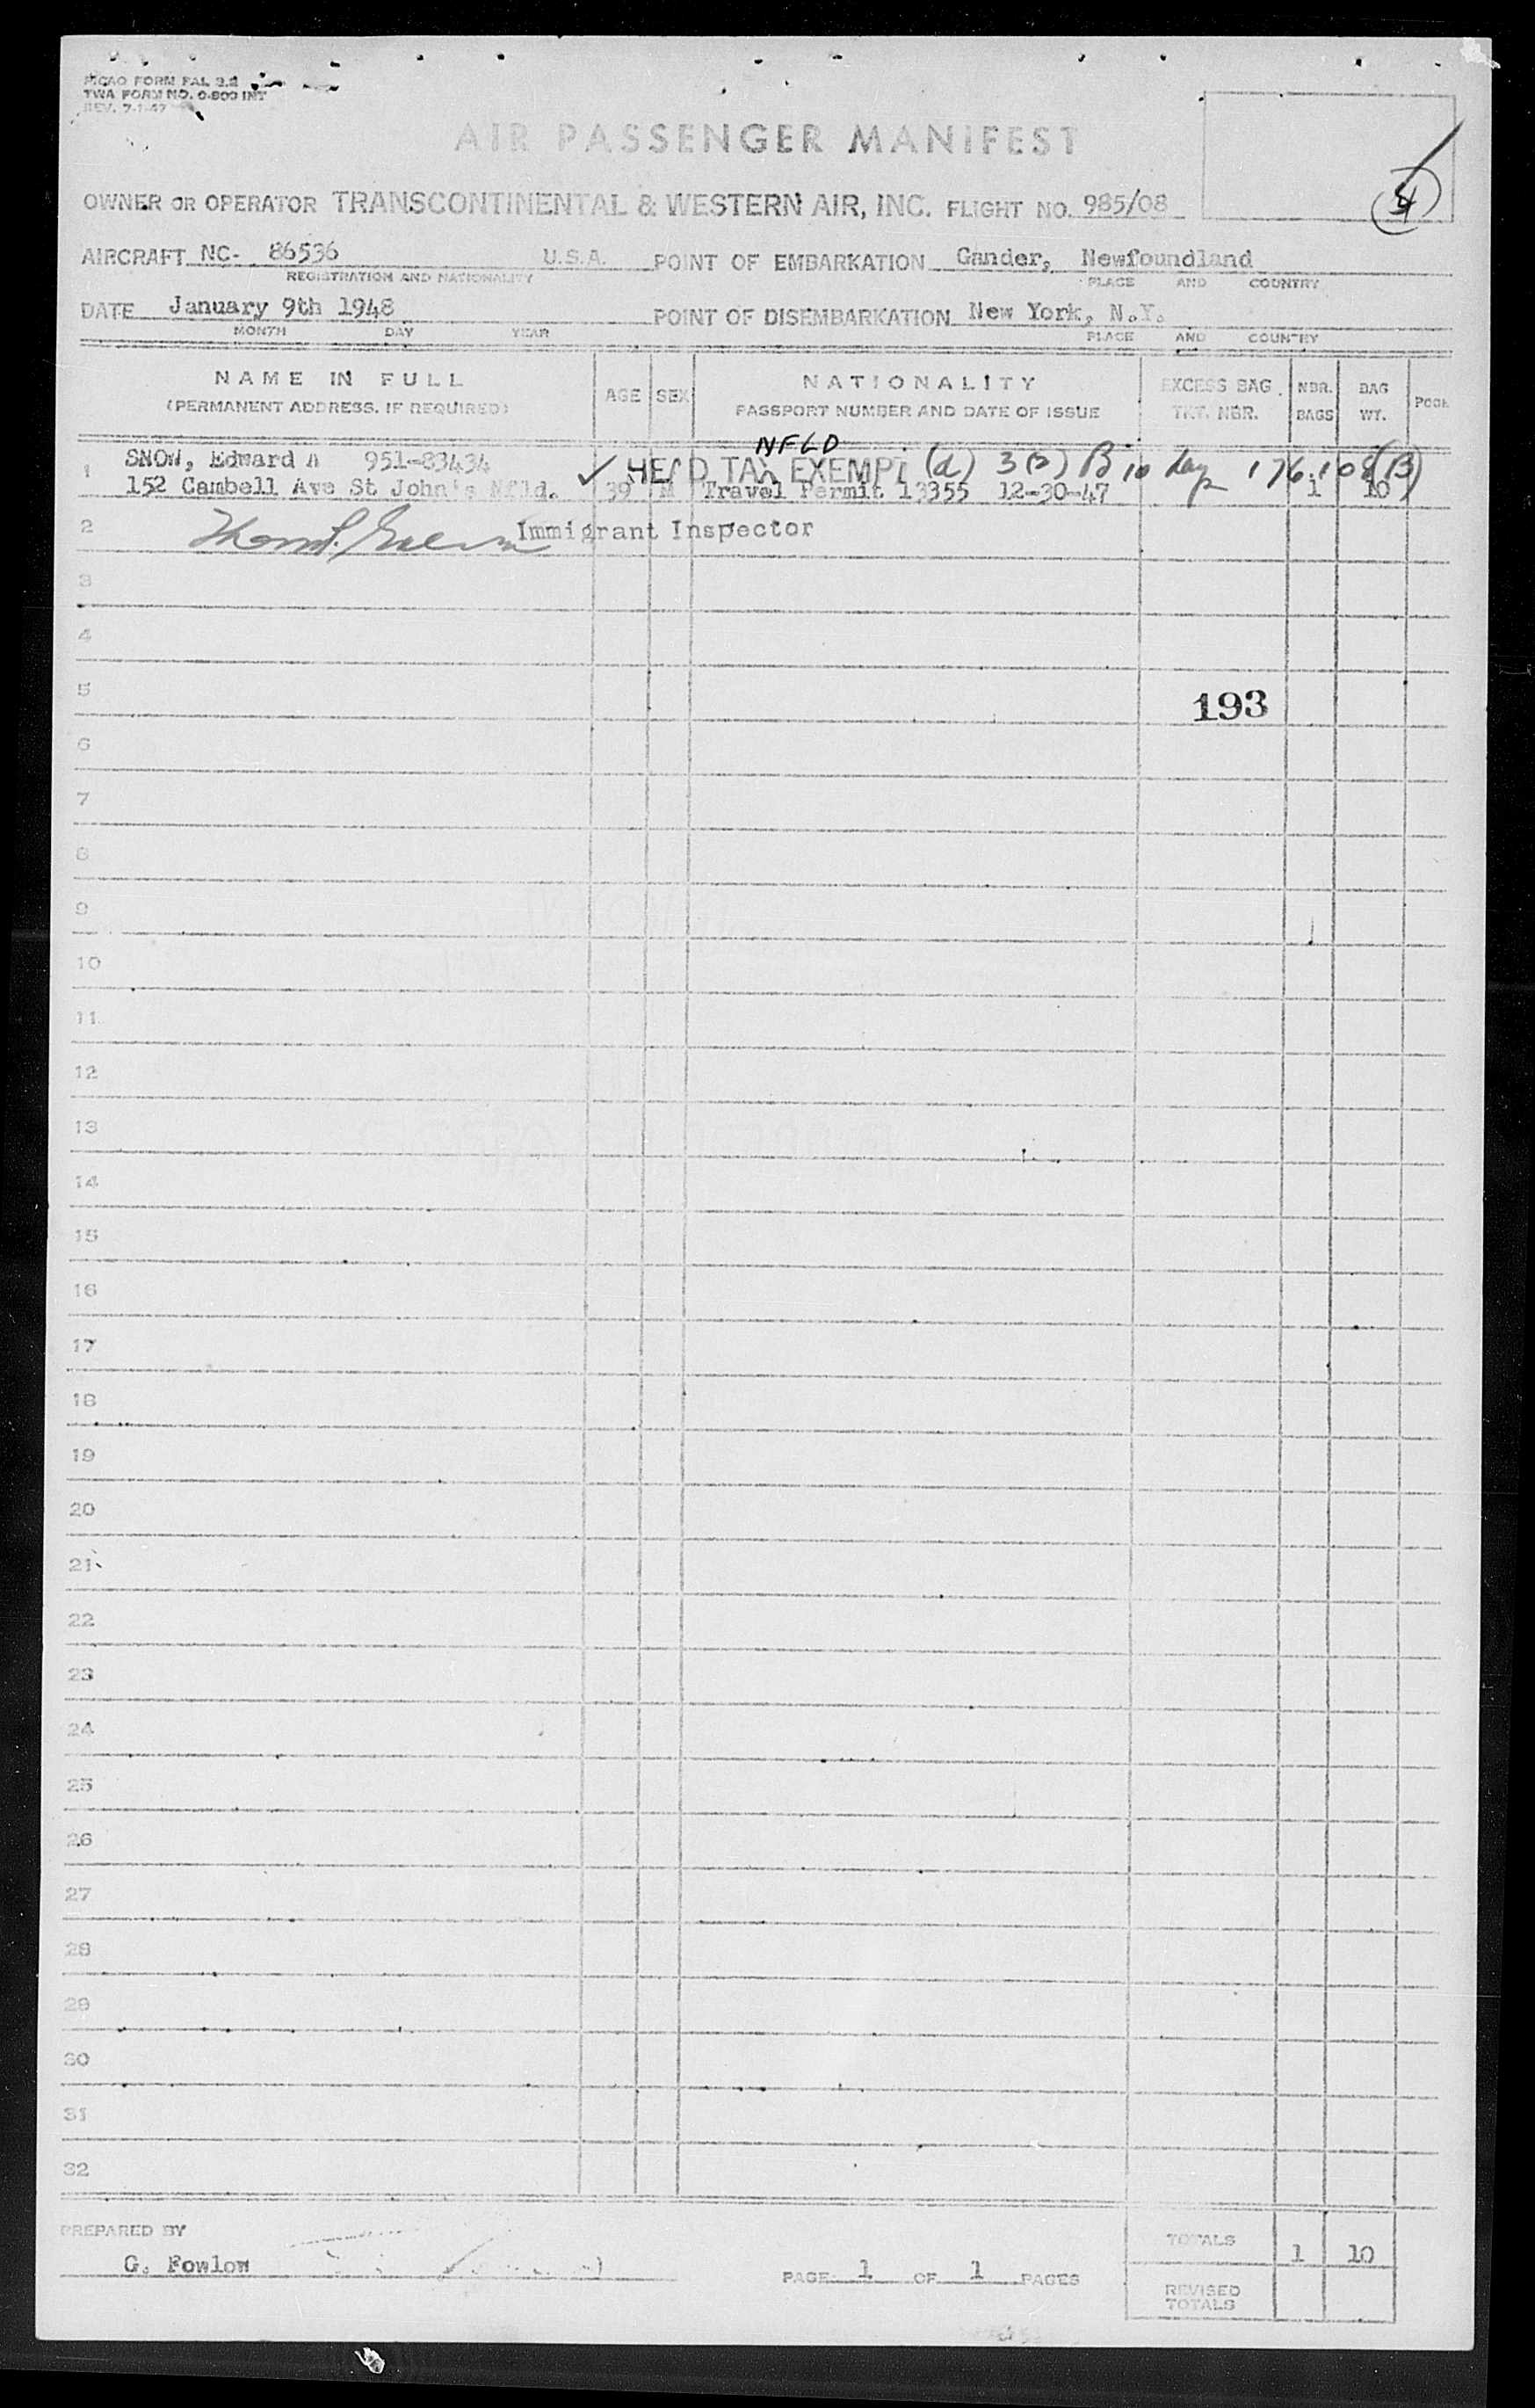 PICAO FORM FAL 3.2
TWA FORM NO. 0-800 INT
REV. 7-1-47
AIR PASSENGER MANIFEST
OWNER OR OPERATOR TRANSCONTINENTAL & WESTERN AIR, INC. FLIGHT NO. 985/08
AIRCRAFT NC- 86536 U.S.A. POINT OF EMBARKATION Gander, Newfoundland
REGISTRATION AND NATIONALITY PLACE AND COUNTRY
DATE January 9th 1948 POINT OF DISEMBARKATION New York, N.Y.
MONTH DAY YEAR PLACE AND COUNTRY
NAME IN FULL AGE SEX NATIONALITY EXCESS BAG. NBR. BAG
(PERMANENT ADDRESS, IF REQUIRED) PASSPORT NUMBER AND DATE OF ISSUE TKT. NBR. BAGS WT.
NFLD
1 SNOW, Edward A 951-83434 ✓ HEAD TAX EXEMPT (d) 3(2) B 10 day 176.108(B)
152 Cambell Ave St John's Nfld. 39 M Travel Permit 13355 12-30-47 1 10
2 Immigrant Inspector
3
4
5 193
6
7
8
9
10
11
12
13
14
15
16
17
18
19
20
21
22
23
24
25
26
27
28
29
30
31
32
PREPARED BY TOTALS 1 10
G. Fowlow PAGE 1 OF 1 PAGES
REVISED
TOTALS